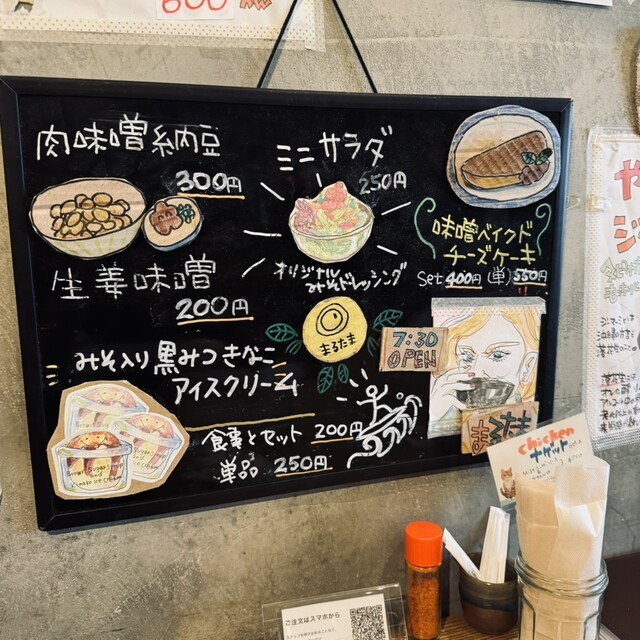 600
肉味噌納豆
300円
ミニサラダ
250円
オリジナル
みそドレッシング
味噌ベイクド
チーズケーキ
Set 400円 (単) 550円
生姜味噌
200円
まるたま
7:30
OPEN
みそ入り黒みつきなこ
アイスクリーム
食事とセット 200円
単品 250円
まるたま
chicken
ナゲット
ご注文はスマホから